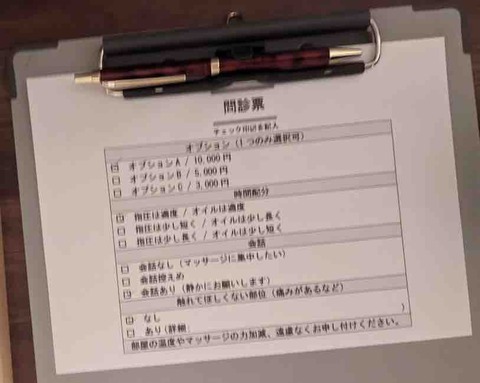 問診票
チェック印をご記入
オプション(1つのみ選択可)
オプションA / 10,000円
オプションB / 5,000円
オプションC / 3,000円
時間配分
指圧は適度 / オイルは適度
指圧は少し短く / オイルは少し長く
指圧は少し長く / オイルは少し短く
会話
会話なし(マッサージに集中したい)
会話控えめ
会話あり(静かにお願いします)
触れてほしくない部位(痛みがあるなど)
なし
あり(詳細 )
部屋の温度やマッサージの力加減、遠慮なくお申し付けください。